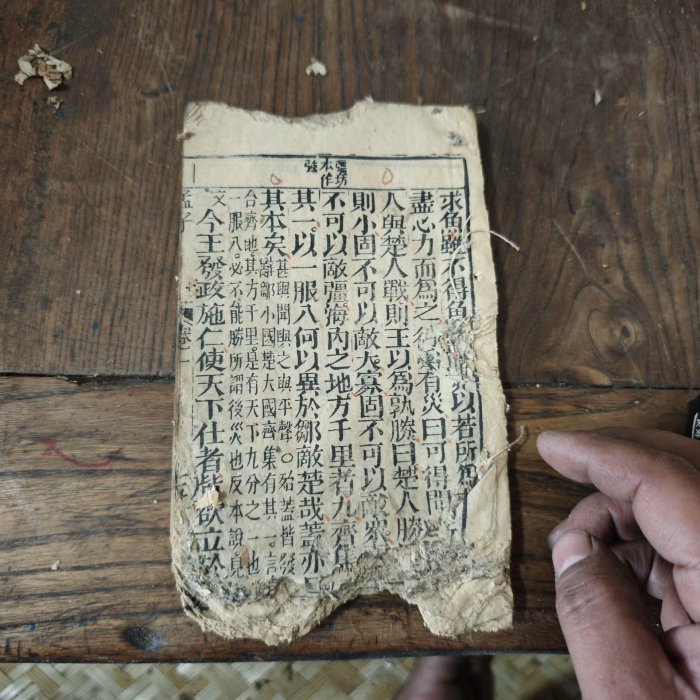 彊坊
本作
強
求魚雖不得魚以若所為
盡心力而為之有災曰可得聞
人與楚人戰則王以為孰勝曰楚人勝
則小固不可以敵大寡固不可以敵眾
不可以敵彊海內之地方千里者九齊
其一以一服八何以異於鄒敵楚哉蓋亦
其本矣
甚與聞與之與平聲○殆蓋皆發
辭鄒小國楚大國齊集有其一言
合齊地其方千里是有天下九分之一也
一服八必不能勝所謂後災也反本說見
文
今王發政施仁使天下仕者皆欲立於
孟子 卷一